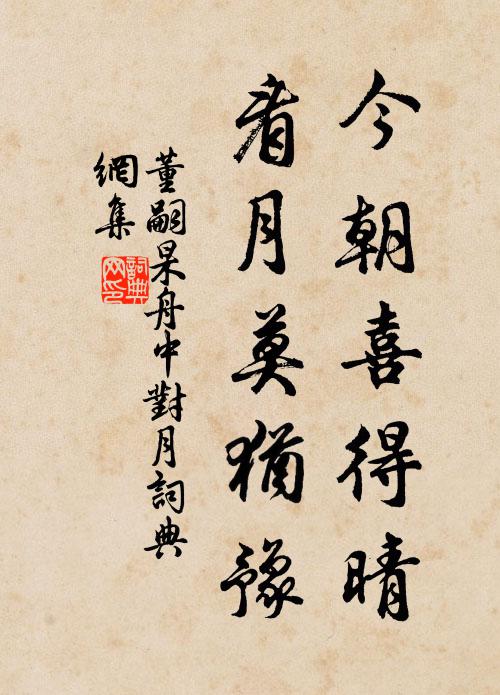 今朝喜得晴
看月莫猶豫
董嗣杲舟中對月詞典
網集
詞典
网印